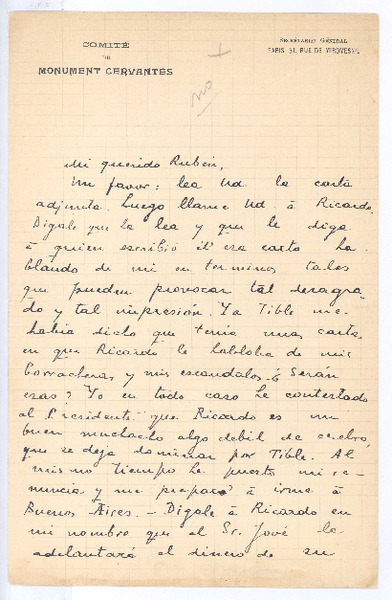 COMITÉ
DU
MONUMENT CERVANTÈS
SECRÉTARIAT GÉNÉRAL
PARIS, 51, RUE DE
no
Mi querido Rubén,
Un favor: lea Ud. la carta
adjunta. Luego llame Ud. á Ricardo.
Dígale que la lea y que le diga
á quien escribió él esa carta ha
blando de mi en terminos tales
que pueden provocar tal desagra
do y tal impresión. Ya Tible me
habia dicho que tenía una carta
en que Ricardo le hablaba de mis
borracheras y mis escandalos. ¿Serán
esas? Yo en todo caso he contestado
al Presidente que Ricardo es un
buen muchacho algo debil de cerebro,
que se deja dominar por Tible. Al
mismo tiempo he puesto mi re
nuncia y me preparo á irme á
Buenos-Aires. — Dígale á Ricardo en
mi nombre que el Sr. Jové le
adelantará el dinero de su